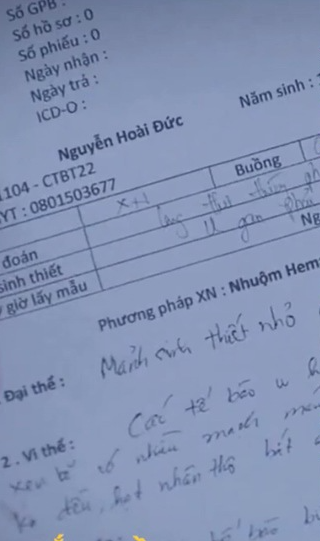 Số GPB :
Số hồ sơ : 0
Số phiếu : 0
Ngày nhận :
Ngày trả :
ICD-O :
Năm sinh :
Nguyễn Hoài Đức
1104 - CTBT22
YT : 0801503677
Buồng
XN
đoán
sinh thiết
giờ lấy mẫu
Ng
Phương pháp XN : Nhuộm Hem
Đại thể : Mảnh sinh thiết nhỏ
2. Vi thể : Các tế bào u
xen kẽ có nhiều mạch
ko đều, hạt nhân thô bắt
tế bào